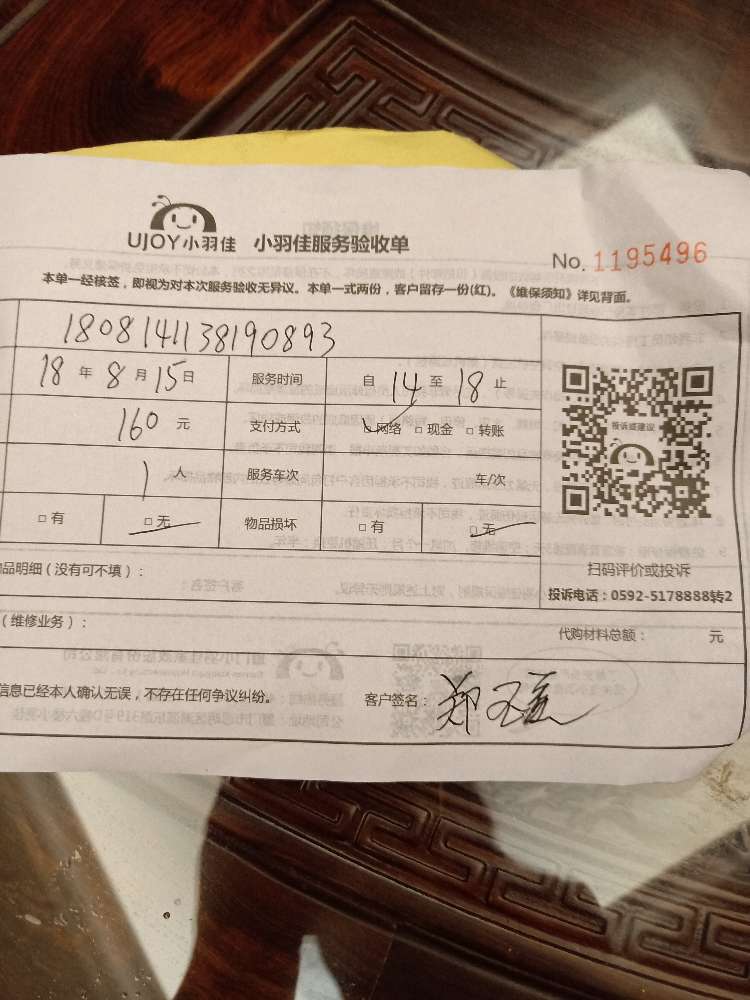 UJOY小羽佳 小羽佳服务验收单
No. 1195496
本单一经核签，即视为对本次服务验收无异议。本单一式两份，客户留存一份(红)。《维保须知》详见背面。
1808141138190893
18 年 8 月 15 日 服务时间 自 14 至 18 止
160 元 支付方式 □ 网络 □ 现金 □ 转账
投诉或建议
1 人 服务车次 车/次
□ 有 □ 无 物品损坏 □ 有 □ 无
扫码评价或投诉
品明细（没有可不填）：
投诉电话：0592-5178888转2
（维修业务）：
代购材料总额： 元
信息已经本人确认无误，不存在任何争议纠纷。 客户签名： 郑